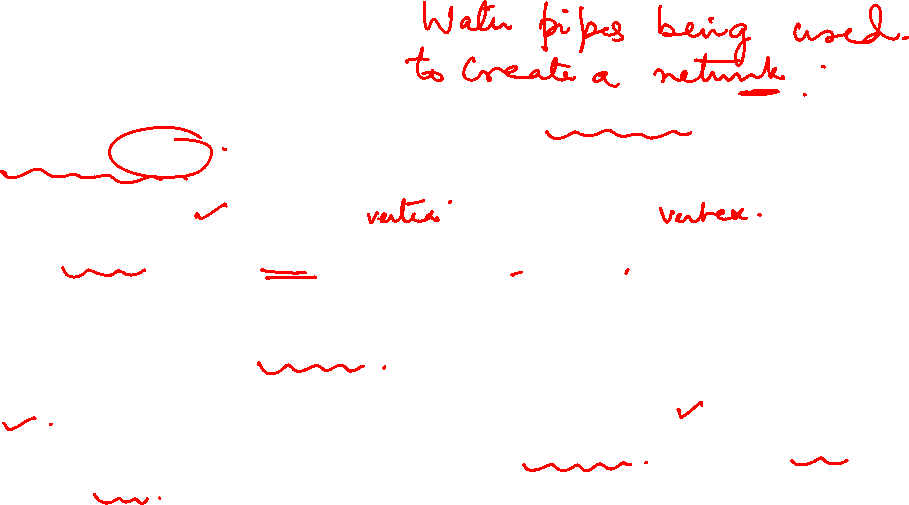 Water pipes being used.
to create a network.
vertex. vertex.